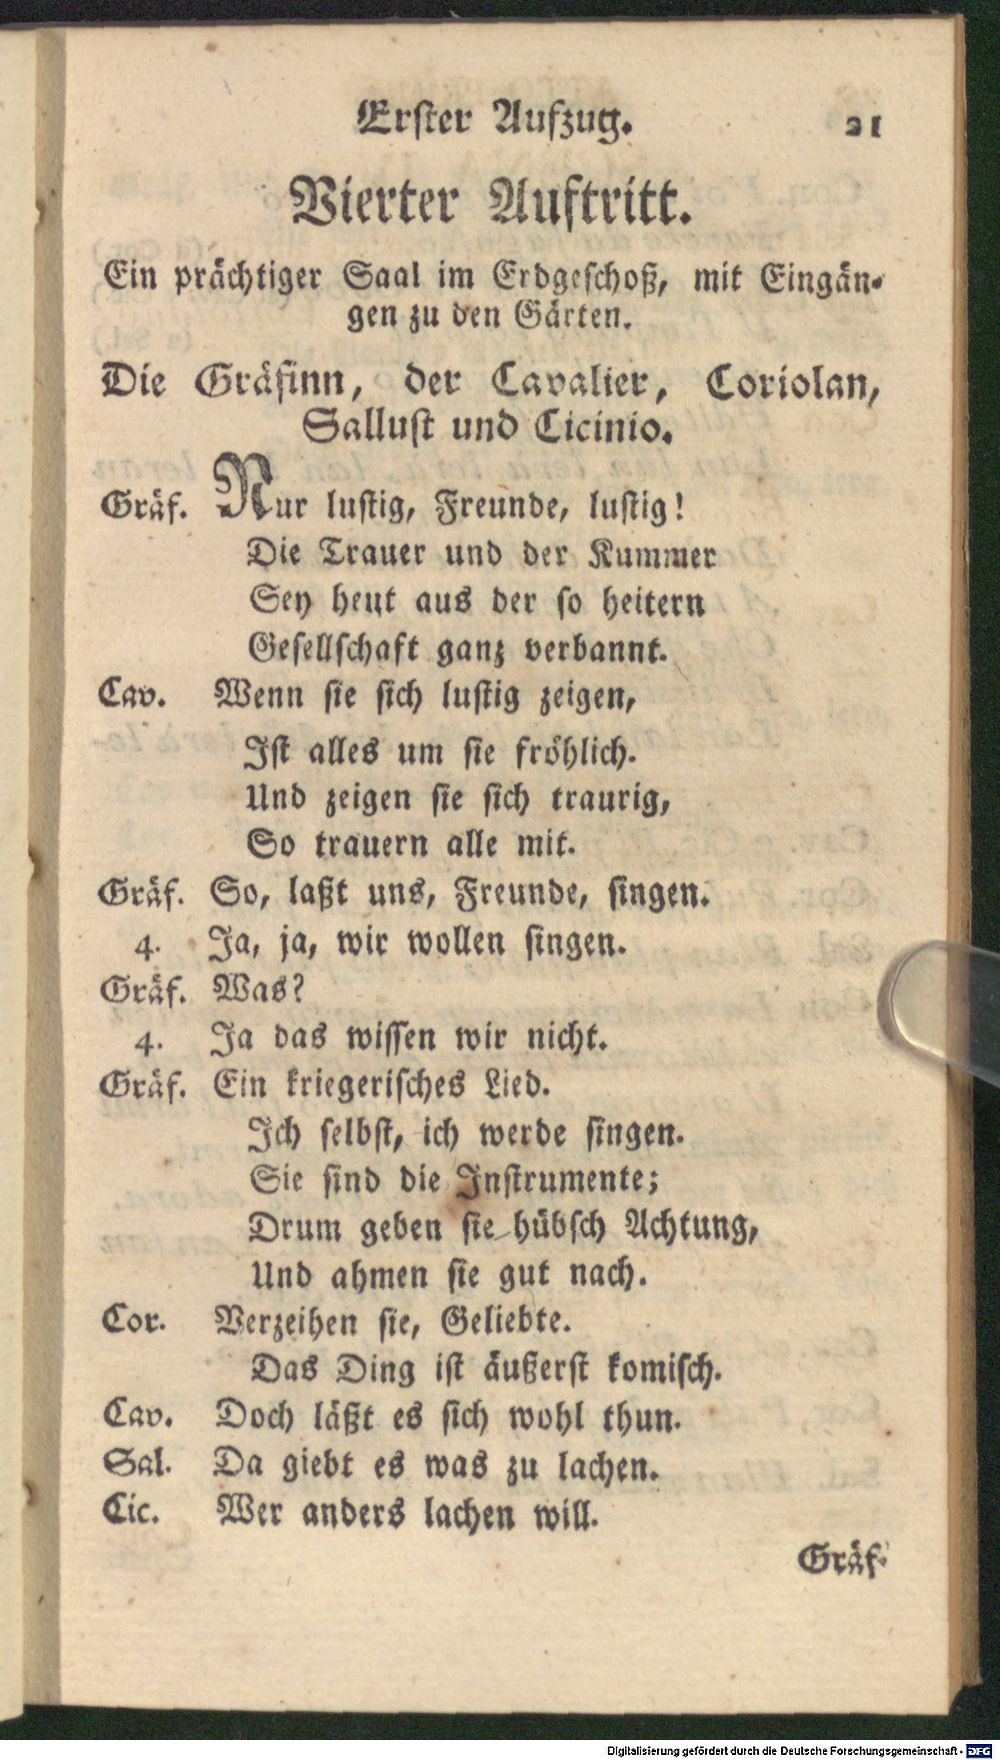 Erster Aufzug. 21
Vierter Auftritt.
Ein prächtiger Saal im Erdgeschoß, mit Eingän-
gen zu den Gärten.
Die Gräfinn, der Cavalier, Coriolan,
Sallust und Cicinio.
Gräf. Nur lustig, Freunde, lustig!
Die Trauer und der Kummer
Sey heut aus der so heitern
Gesellschaft ganz verbannt.
Cav. Wenn sie sich lustig zeigen,
Ist alles um sie fröhlich.
Und zeigen sie sich traurig,
So trauern alle mit.
Gräf. So, laßt uns, Freunde, singen.
4. Ja, ja, wir wollen singen.
Gräf. Was?
4. Ja das wissen wir nicht.
Gräf. Ein kriegerisches Lied.
Ich selbst, ich werde singen.
Sie sind die Instrumente;
Drum geben sie hübsch Achtung,
Und ahmen sie gut nach.
Cor. Verzeihen sie, Geliebte.
Das Ding ist äußerst komisch.
Cav. Doch läßt es sich wohl thun.
Sal. Da giebt es was zu lachen.
Cic. Wer anders lachen will.
Gräf.
Digitalisierung gefördert durch die Deutsche Forschungsgemeinschaft - DFG